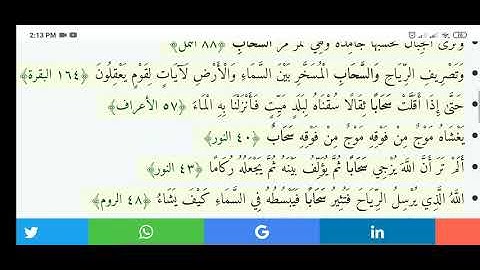 2:13 PM
وَتَرَى الْجِبَالَ تَحْسَبُهَا جَامِدَةً وَهِيَ تَمُرُّ مَرَّ السَّحَابِ ﴿٨٨ النمل﴾
وَتَصْرِيفِ الرِّيَاحِ وَالسَّحَابِ الْمُسَخَّرِ بَيْنَ السَّمَاءِ وَالْأَرْضِ لَآيَاتٍ لِقَوْمٍ يَعْقِلُونَ ﴿١٦٤ البقرة﴾
حَتَّىٰ إِذَا أَقَلَّتْ سَحَابًا ثِقَالًا سُقْنَاهُ لِبَلَدٍ مَيِّتٍ فَأَنْزَلْنَا بِهِ الْمَاءَ ﴿٥٧ الأعراف﴾
يَغْشَاهُ مَوْجٌ مِنْ فَوْقِهِ مَوْجٌ مِنْ فَوْقِهِ سَحَابٌ ﴿٤٠ النور﴾
أَلَمْ تَرَ أَنَّ اللَّهَ يُزْجِي سَحَابًا ثُمَّ يُؤَلِّفُ بَيْنَهُ ثُمَّ يَجْعَلُهُ رُكَامًا ﴿٤٣ النور﴾
اللَّهُ الَّذِي يُرْسِلُ الرِّيَاحَ فَتُثِيرُ سَحَابًا فَيَبْسُطُهُ فِي السَّمَاءِ كَيْفَ يَشَاءُ ﴿٤٨ الروم﴾
G in